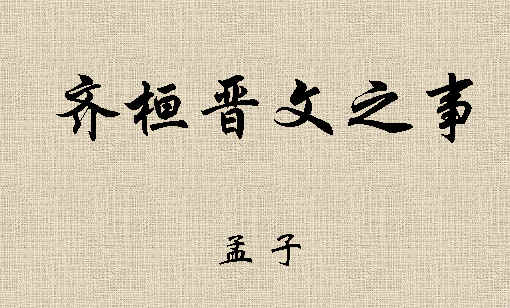 齐桓晋文之事
孟子